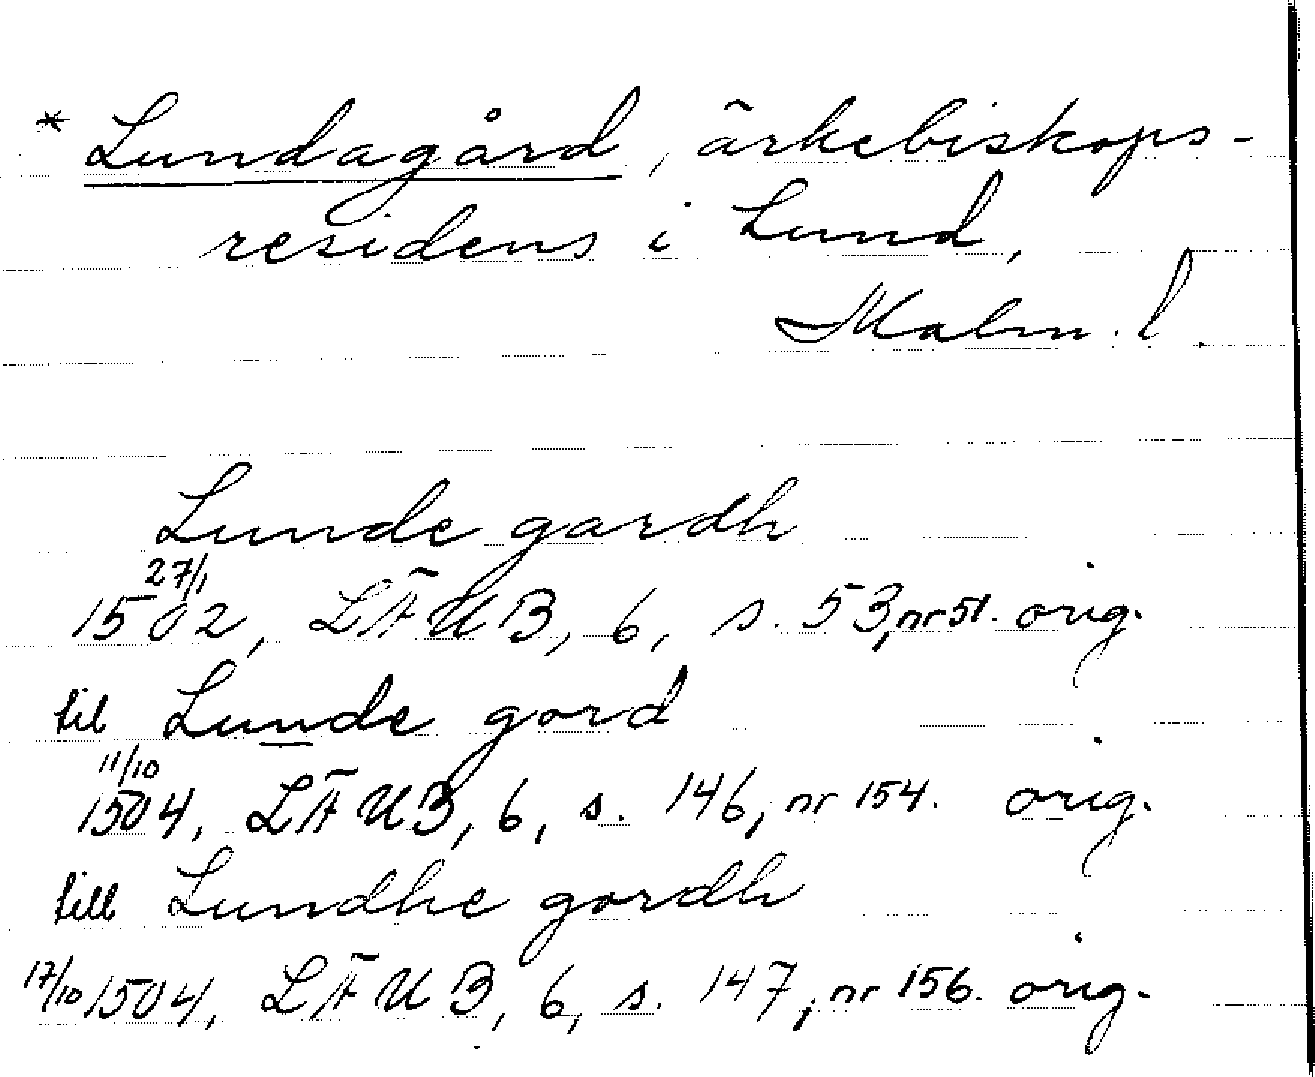 * Lundagård, ärkebiskops-
residens i Lund,
Malm. l.
Lunde gardh
27/1
1502, LÄUB, 6, s. 53, nr 51. orig.
til Lunde gord
11/10
1504, LÄUB, 6, s. 146, nr 154. orig.
till Lundhe gordh
17/10 1504, LÄUB, 6, s. 147, nr 156. orig.